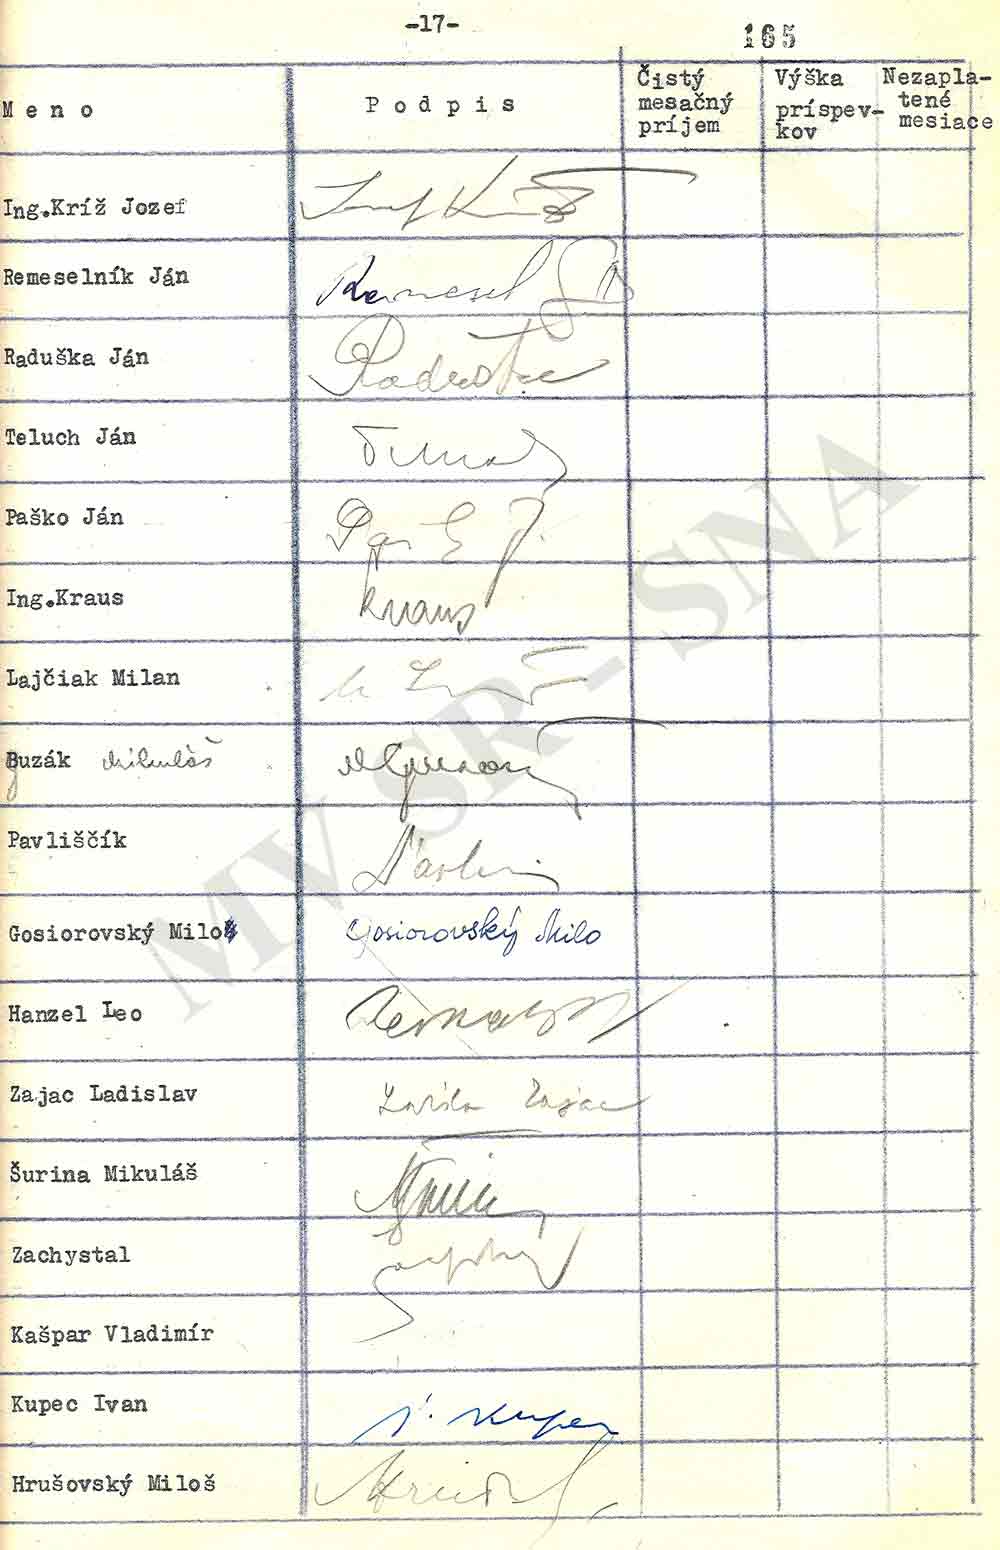 -17-
165
Meno
Podpis
Čistý
mesačný
príjem
Výška
príspev-
kov
Nezapla-
tené
mesiace
Ing.Kríž Jozef
Remeselník Ján
Remesel
Raduška Ján
Raduška
Teluch Ján
Paško Ján
Ing.Kraus
Kraus
Lajčiak Milan
Guzák Mikuláš
Pavliščík
Gosiorovský Milo
Gosiorovský Milo
Hanzel Leo
Zajac Ladislav
Zajac
Šurina Mikuláš
Zachystal
Kašpar Vladimír
Kupec Ivan
I. Kupec
Hrušovský Miloš
MV SR - SNA